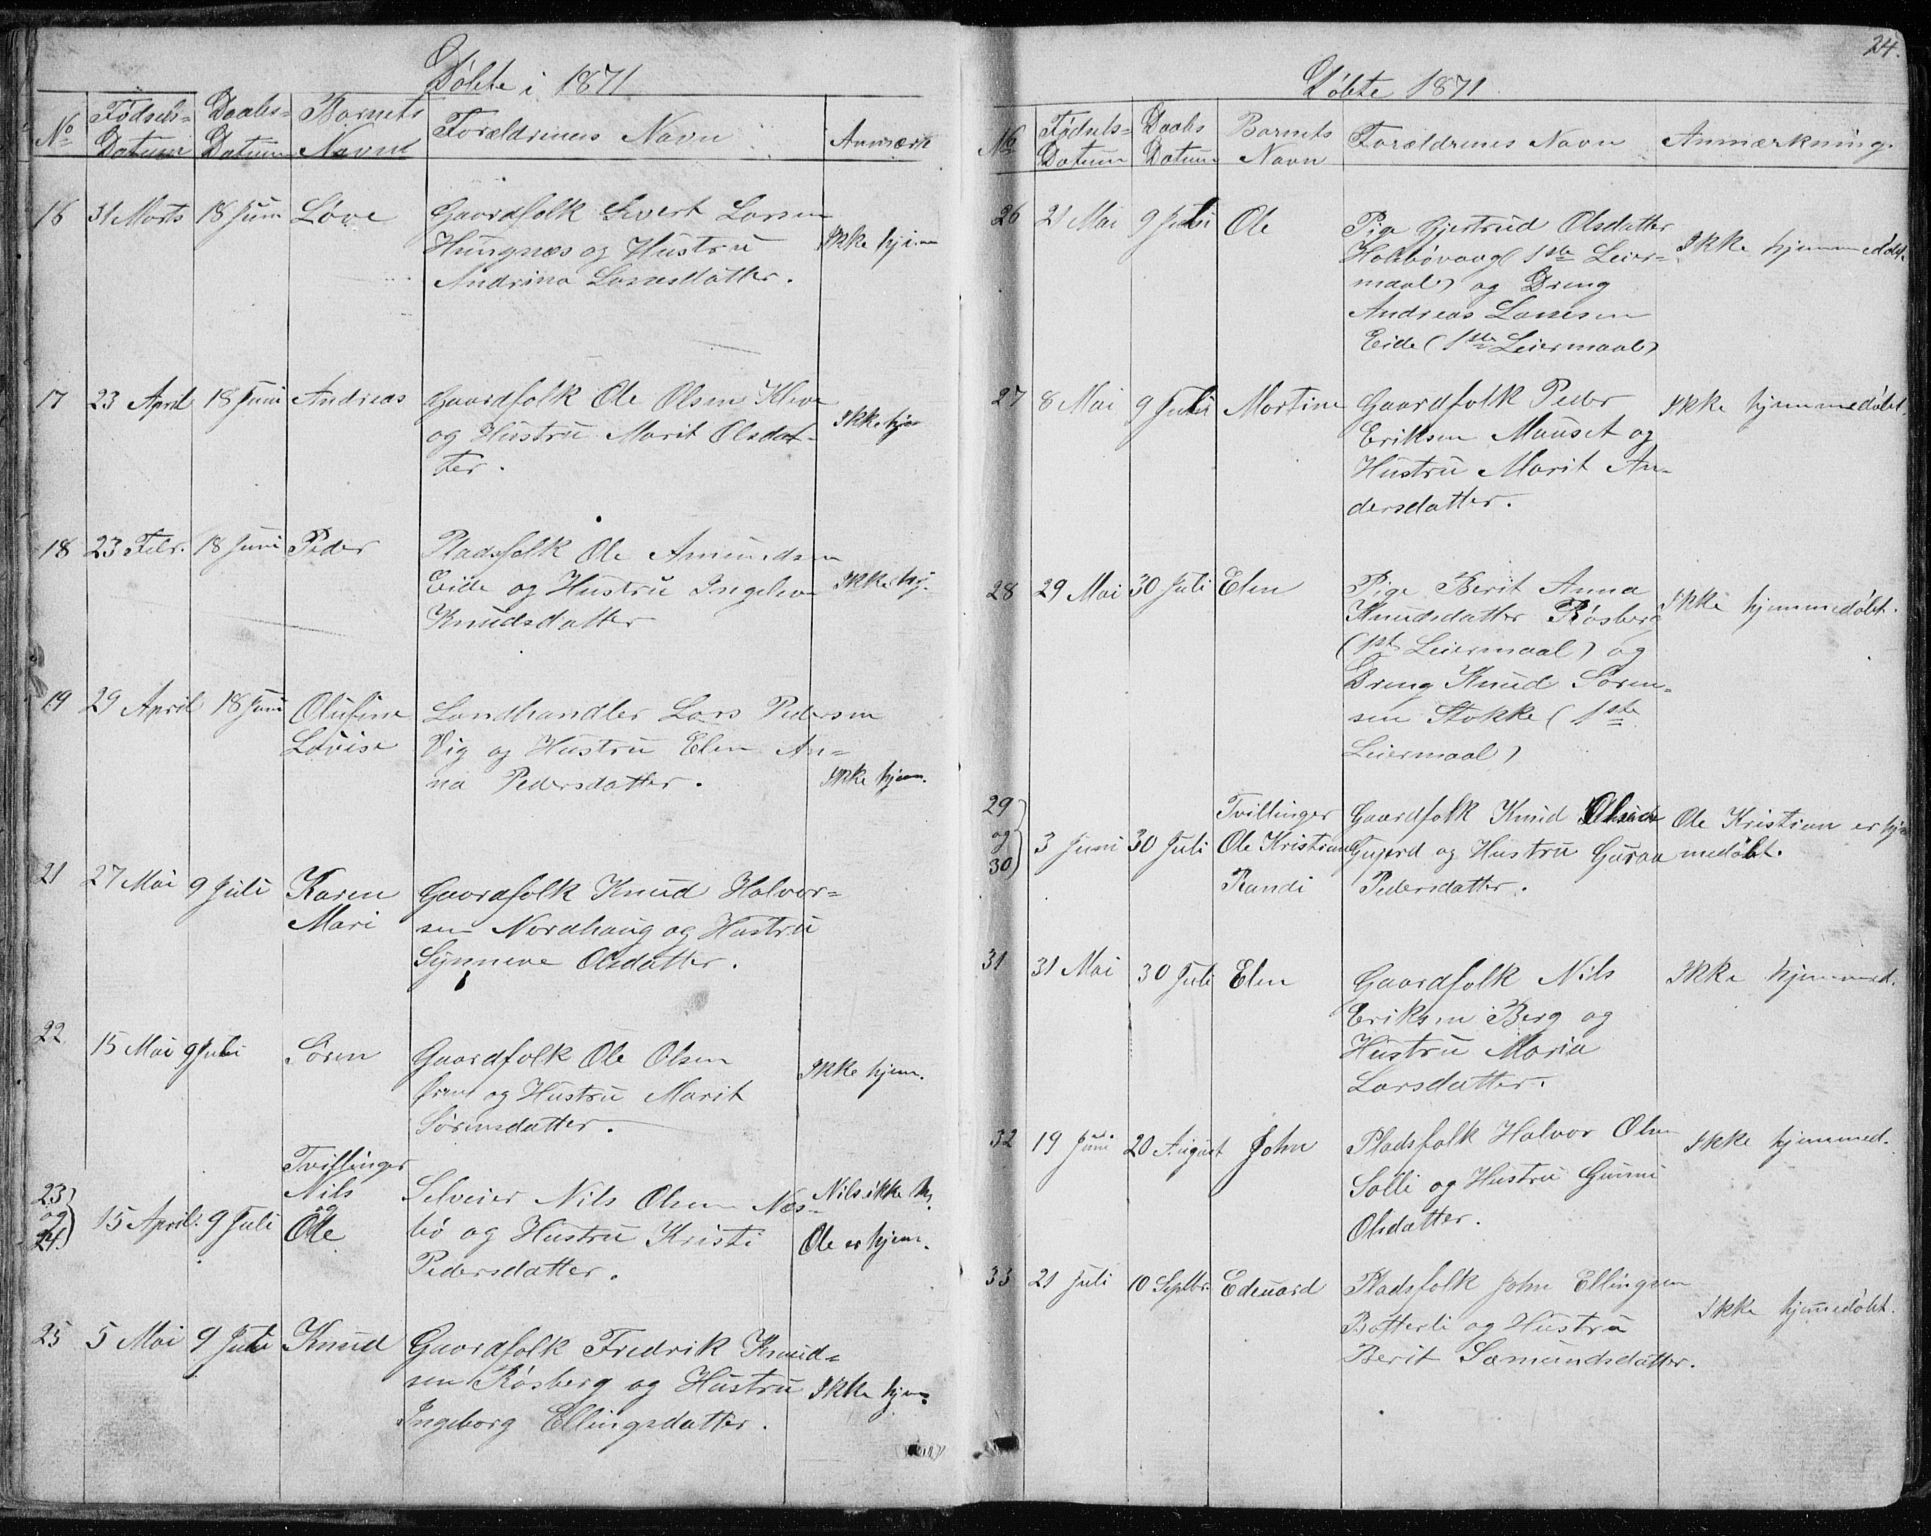 Døbte i 1871
No Fødsels-Datum Daabs-Datum Barnets Navn Forældrenes Navn Anmærk
16 31 Marts 18 Juni Løve Gaardfolk Sivert Larsen
Hungnæs og Hustru Ikke hjem
Andrina Larsdatter.
17 23 April 18 Juni Andreas Gaardfolk Ole Olsen Kleve
og Hustru Marit Olsdat- Ikke hjem
ter.
18 23 Febr. 18 Juni Peder Pladsfolk Ole Amundsen
Eide og Hustru Ingelev Ikke hj.
Knudsdatter
19 29 April 18 Juni Olufine Landhandler Lars Pedersen
Lovise Vig og Hustru Elen An-
na Pedersdatter. Ikke hjem.
21 27 Mai 9 Juli Karen Gaardfolk Knud Halvor-
Mari sen Nordhaug og Hustru
Synneve Olsdatter.
22 15 Mai 9 Juli Søren Gaardfolk Ole Olsen Ikke hjem.
og Hustru Marit
Sørensdatter.
Tvillinger
23 Nils Selveier Nils Olsen Næs- Nils ikke hj.
og 15 April 9 Juli og
24 Ole bø og Hustru Kristi Ole er hjem.
Pedersdatter.
25 5 Mai 9 Juli Knud Gaardfolk Fredrik Knud-
sen Røsberg og Hustru Ikke hjem
Ingeborg Ellingsdatter.
24.
Døbte 1871.
No Fødsels-Datum Daabs Datum Barnets Navn Forældrenes Navn Anmærkning.
26 21 Mai 9 Juli Ole Pige Gjertrud Olsdatter
Holsbøvaag (1ste Leier- Ikke hjemmedøbt.
maal) og Dreng
Andreas Larsen
Eide (1ste Leiermaal)
27 8 Mai 9 Juli Martine Gaardfolk Peder Ikke hjemmedøbt.
Eriksen Mauset og
Hustru Marit An-
dersdatter.
28 29 Mai 30 Juli Elen Pige Berit Anna
Knudsdatter Røsberg Ikke hjemmedøbt.
(1ste Leiermaal) og
Dreng Knud Søren-
sen Stokke (1ste
Leiermaal)
29 Tvillinger Gaardfolk Knud Olsen Ole Kristian er hjem
og 3 Juni 30 Juli Ole Kristian og Hustru Guraa medøbt.
30 Randi Pedersdatter.
31 31 Mai 30 Juli Elen Gaardfolk Nils Ikke hjemmed.
Eriksen Berg og
Hustru Maria
Larsdatter.
32 19 Juni 20 August John Pladsfolk Halvor Olsen Ikke hjemmed.
Solli og Hustru Gunni
Olsdatter.
33 21 Juli 10 Septbr. Edevard Pladsfolk John Ellingsen
Botterli og Hustru Ikke hjemedøbt.
Berit Samundsdatter.